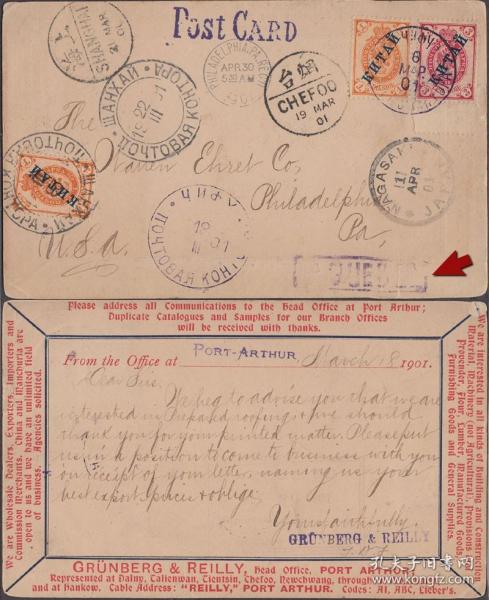 POST CARD
SHANGHAI
MAR
01
PHILADELPHIA, PA. REC'D
APR 30
5 30 AM
КИТАЙ
КИТАЙ
8
МАР
01
烟台
CHEFOO
19 MAR
01
ШАНХАЙ
22
III
01
ПОЧТОВАЯ КОНТОРА
The
Warren Ehret Co.
Philadelphia
Pa,
U.S.A.
КИТАЙ
ШАНХАЙ
ПОЧТОВАЯ КОНТОРА
ЧИФУ
III 01
ПОЧТОВАЯ КОНТ
NAGASAKI
APR
01
JAPAN
Please address all Communications to the Head Office at Port Arthur;
Duplicate Catalogues and Samples for our Branch Offices
will be received with thanks.
We are Wholesale Dealers, Exporters, Importers and
Commission Merchants. China and Manchuria are
open to us and we have an unlimited field
of business. Agencies solicited.
We are interested in all kinds of Building and Construction
Material, Machinery (not Agricultural), Provisions
Provender, Flour, Lumber, Manufactured Goods,
Furnishing Goods and General Supplies.
From the Office at PORT-ARTHUR, March 8 1901.
Dear Sirs.
We beg to advise you that we are
interested in Prepared roofing & we should
thank you for your printed matter. Please put
us in a position to come to business with you
on receipt of your letter, naming us your
best export prices & oblige
Yours faithfully
GRÜNBERG & REILLY
GRÜNBERG & REILLY, Head Office, PORT ARTHUR
Represented at Dalny, Talienwan, Tientsin, Chefoo, Newchwang, through
and at Hankow. Cable Address: "REILLY," PORT ARTHUR. Codes: A1, ABC, Lieber's.
孔夫子旧书网